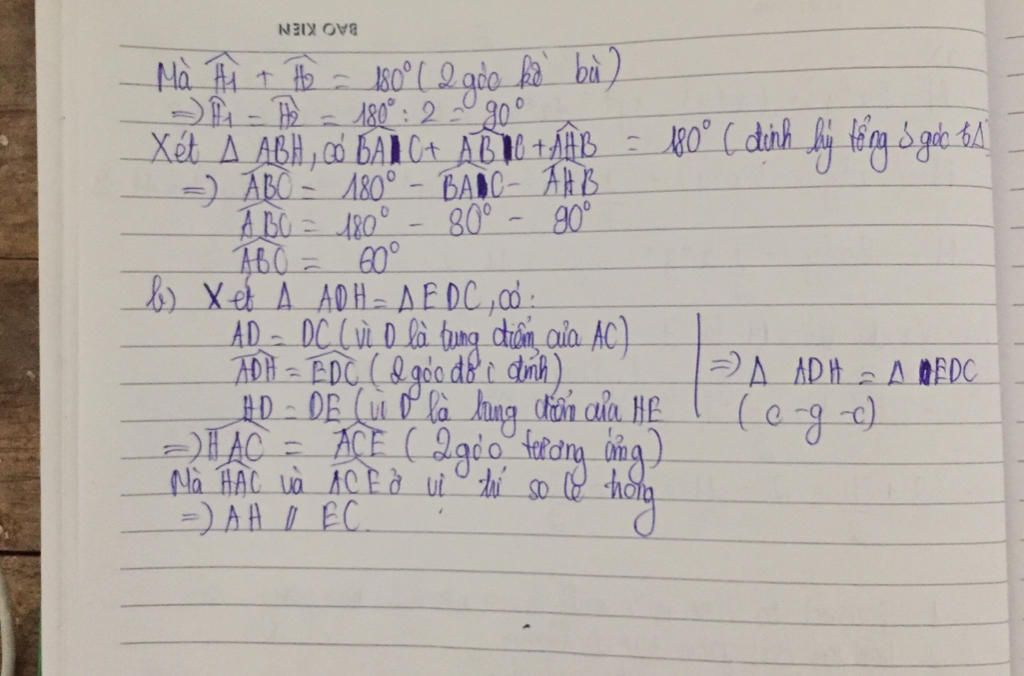 BAO KIEN
Mà Ĥ1 + Ĥ2 = 180° (2 góc kề bù)
=> Ĥ1 = Ĥ2 = 180° : 2 = 90°
Xét Δ ABH, có BAC + ABC + AHB = 180° (định lý tổng 3 góc tΔ
=> ABC = 180° - BAC - AHB
ABC = 180° - 30° - 90°
ABC = 60°
b) Xét Δ ADH = Δ EDC, có:
AD = DC (vì D là tung điểm của AC)
ADH = EDC (2 góc đối đỉnh)
HD = DE (vì D là tung điểm của HE
=> Δ ADH = Δ EDC
(c - g - c)
=> HAC = ACE (2 góc tương ứng)
Mà HAC và ACE ở vị trí so le trong
=> AH // EC.